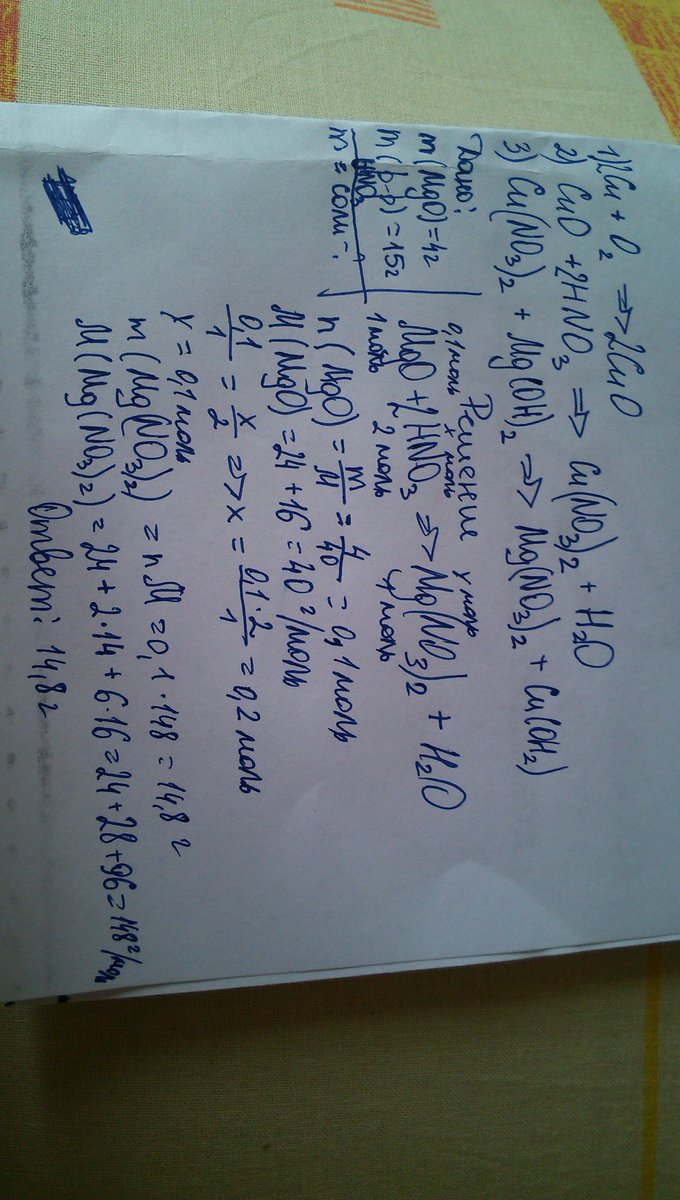 1) 2Cu + O₂ => 2CuO
2) CuO + 2HNO₃ => Cu(NO₃)₂ + H₂O
3) Cu(NO₃)₂ + Mg(OH)₂ => Mg(NO₃)₂ + Cu(OH₂)
Дано:
m(MgO) = 4г
m(р-р) = 15г
HNO₃
m = соли - ?
Решение
0,1 моль x моль y моль
MgO + 2HNO₃ => Mg(NO₃)₂ + H₂O
1 моль 2 моль y моль
n(MgO) = m/M = 4/40 = 0,1 моль
M(MgO) = 24 + 16 = 40 г/моль
0,1/1 = x/2 => x = 0,1·2/1 = 0,2 моль
y = 0,1 моль
m(Mg(NO₃)₂) = nM = 0,1·148 = 14,8 г
M(Mg(NO₃)₂) = 24 + 2·14 + 6·16 = 24 + 28 + 96 = 148 г/моль
Ответ: 14,8 г